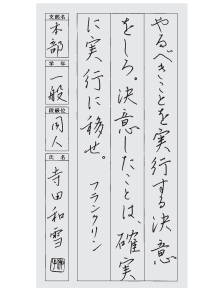 やるべきことを実行する決意
をしろ。決意したことは、確実
に実行に移せ。
フランクリン
支部名
本部
学年
一般
段級位
同人
氏名
寺田和雪